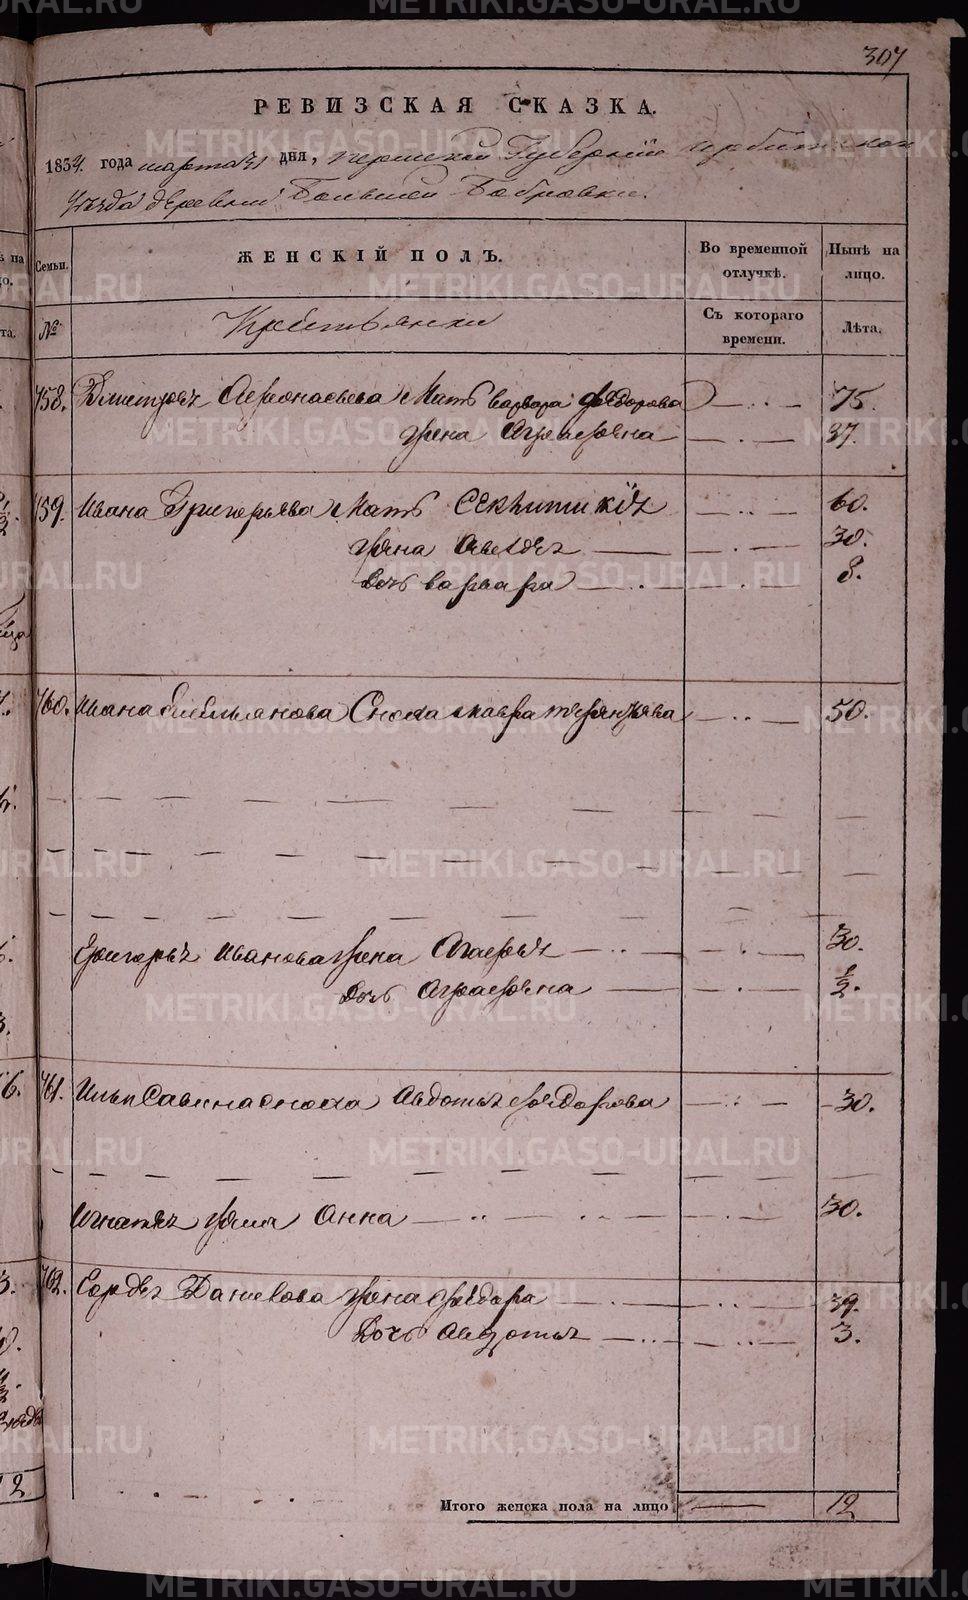 307
РЕВИЗСКАЯ СКАЗКА.
1834 года марта дня, пермской Губернии Ирбитской
Уезда деревни Большей Бобровки.
Семьи. ЖЕНСКІЙ ПОЛЪ. Во временной отлучкѣ. Нынѣ на лицо.
№ Крестьянки Съ котораго времени. Лѣта.
758. Дмитрея Афонасьева Мать варвара федорова 75.
жена Аграфена 37.
759. Ивана Григорьева Мать 60.
жена Авдотья 30.
Дочь варвара 8.
760. Ивана Емельянова Сноха мавра 50.
Григорья Иванова жена 30.
Дочь Аграфена ½.
761. Ильи Савина сноха Авдотья федорова 30.
Игнатья жена Анна 30.
762. Данилова жена федора 39.
Дочь Авдотья 3.
Итого женска пола на лицо 12
METRIKI.GASO-URAL.RU